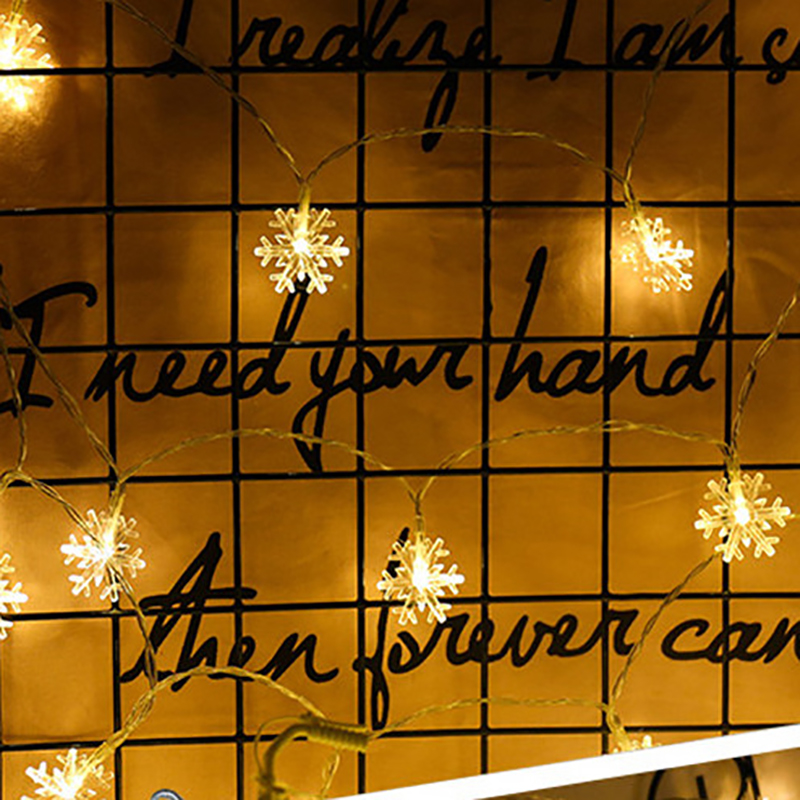 I realize I am
I need your hand
then forever can